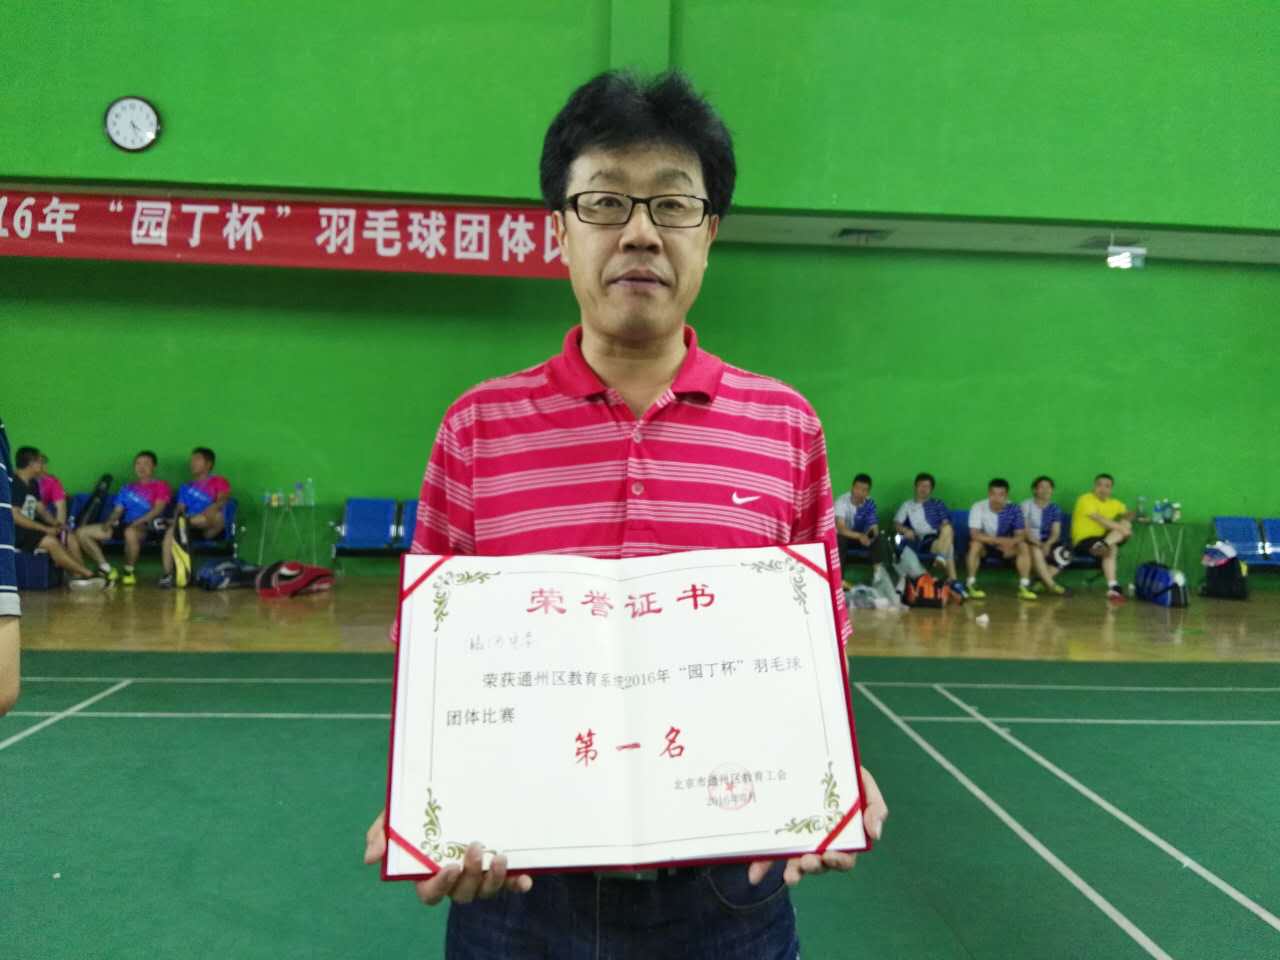 16年“园丁杯”羽毛球团体比
荣誉证书
荣获通州区教育系统2016年“园丁杯”羽毛球
团体比赛
第一名
北京市通州区教育工会